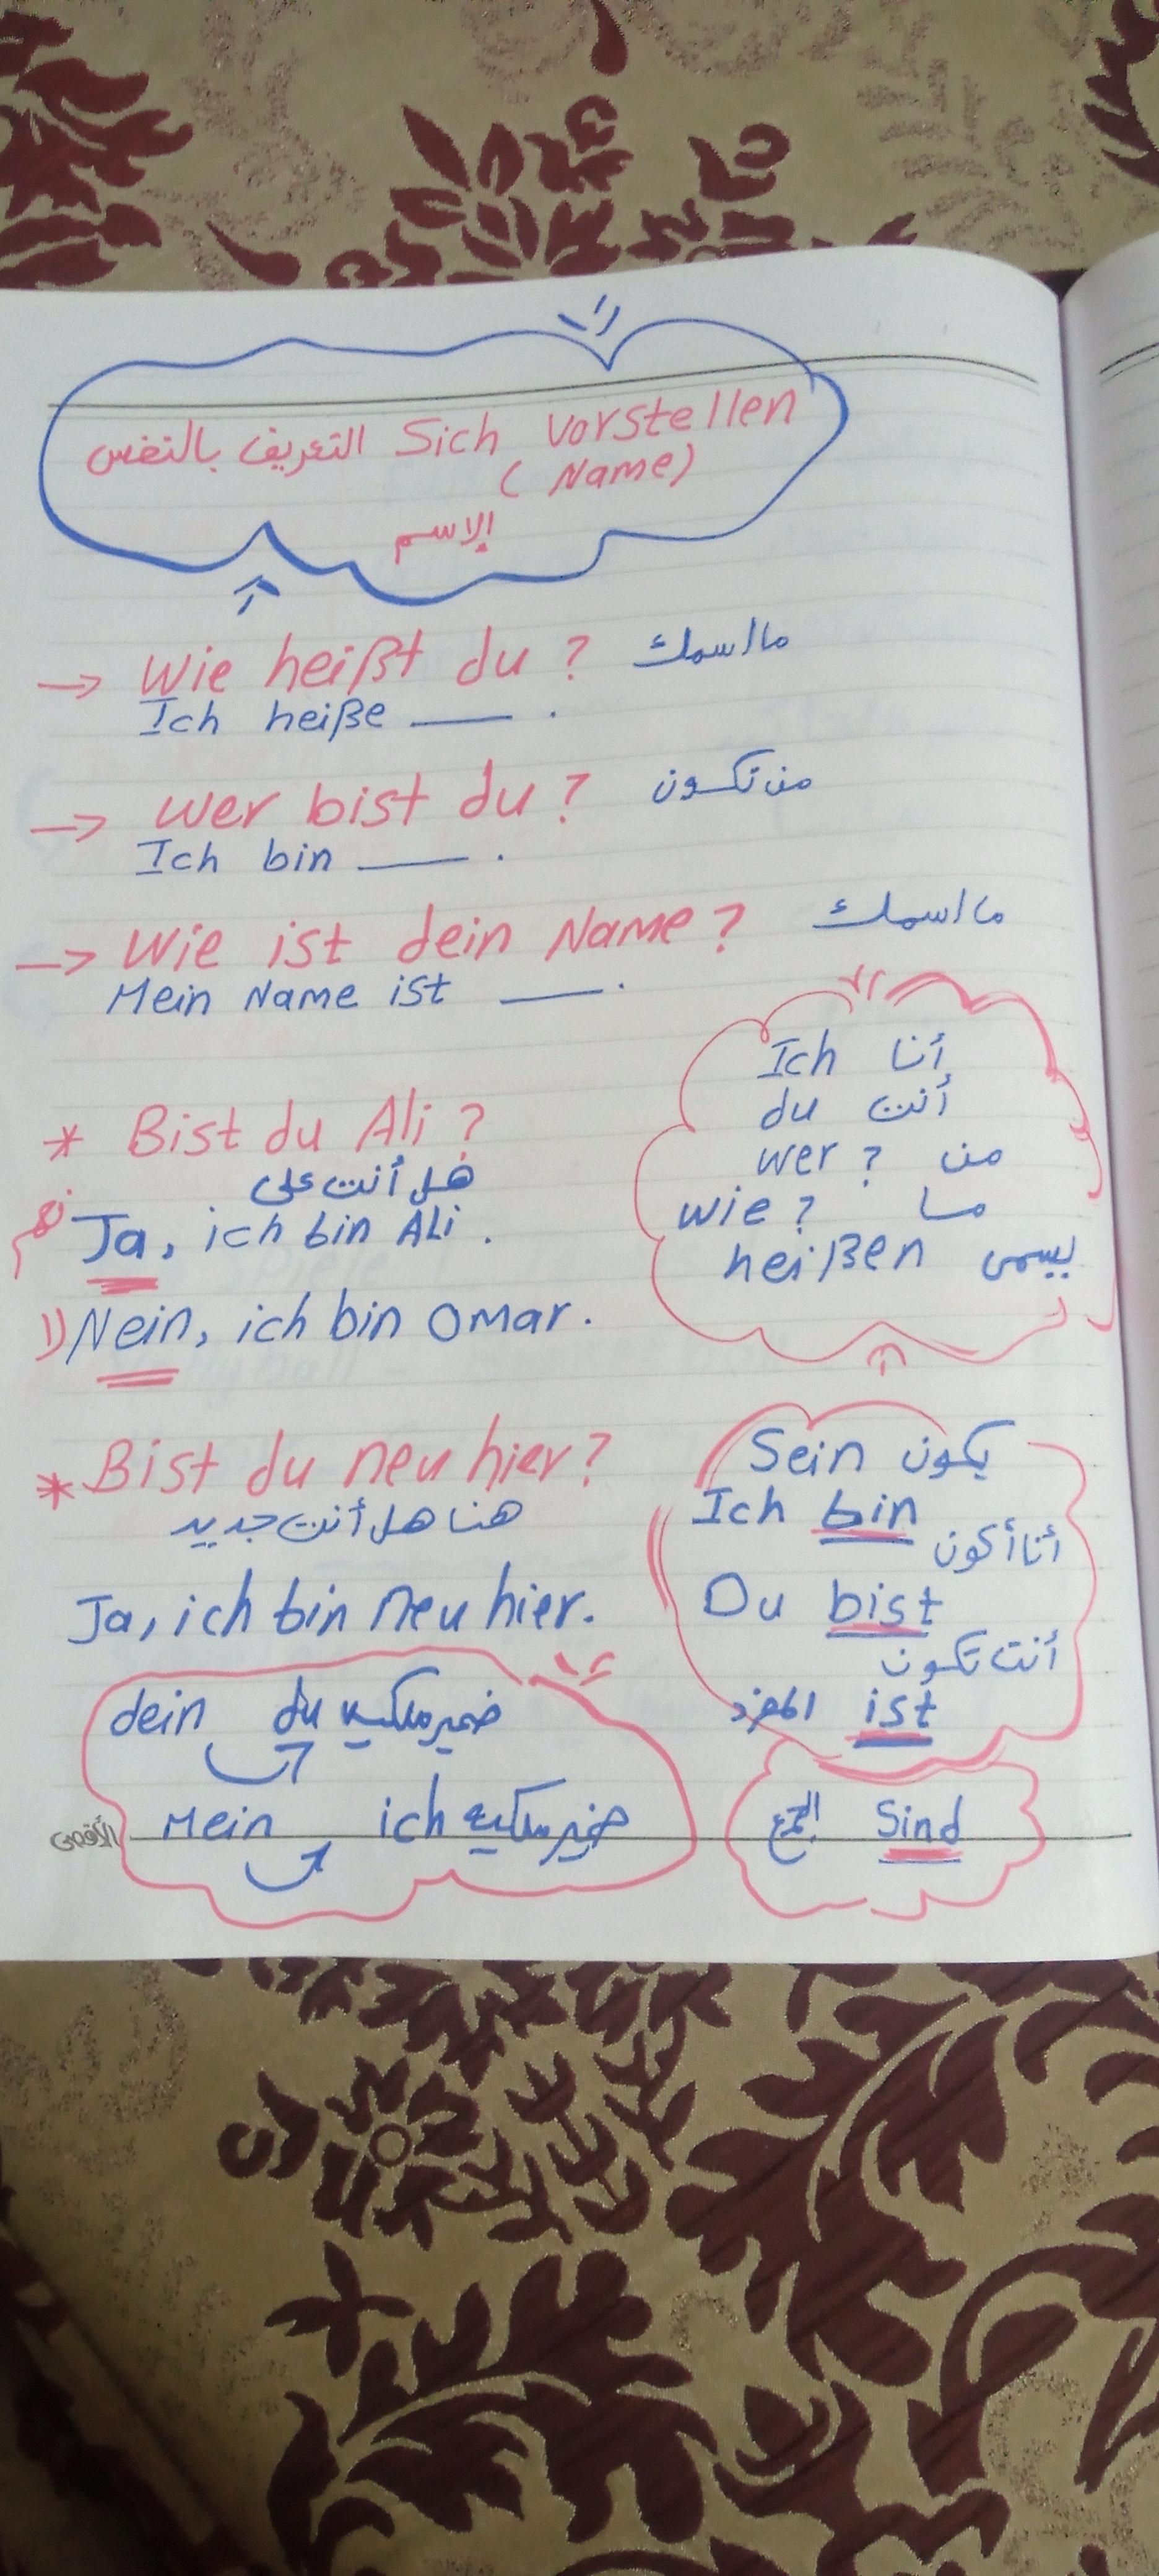 التعريف بالنفس Sich Vorstellen
(Name)
الاسم
→ Wie heißt du? ما اسمك
Ich heiße ___ .
→ Wer bist du? من تكون
Ich bin ___ .
→ Wie ist dein Name? ما اسمك
Mein Name ist ___ .
* Bist du Ali?
هل أنت على
نعم
Ja, ich bin Ali.
لا Nein, ich bin Omar.
Ich أنا
du أنت
wer? من
wie? ما
heißen يسمى
* Bist du neu hier?
هنا هل أنت جديد
Ja, ich bin neu hier.
Sein يكون
Ich bin
أنا أكون
Du bist
أنت تكون
المفرد ist
الجمع Sind
dein du ضمير ملكيه
Mein ich ضمير ملكيه
الأقصى